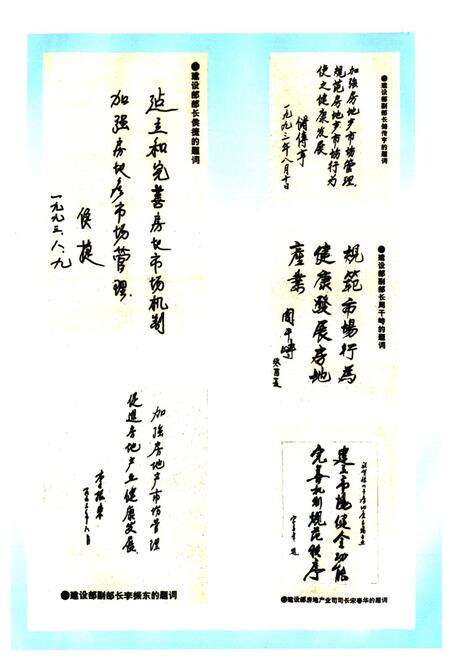 ●建设部部长侯捷的题词
建立和完善房地市场机制
加强房地产市场管理
侯捷
一九九三.八.九
●建设部副部长储传亨的题词
加强房地产市场管理，
规范房地产市场行为
使之健康发展
储传亨
一九九三年八月十日
●建设部副部长周干峙的题词
规范市場行为
健康發展房地
產業
周干峙
癸酉夏
加强房地产市场管理
促進房地产业健康发展
李振东
●建设部副部长李振东的题词
建立市场健全功能
完善机制规范秩序
宋春华
●建设部房地产业司司长宋春华的题词